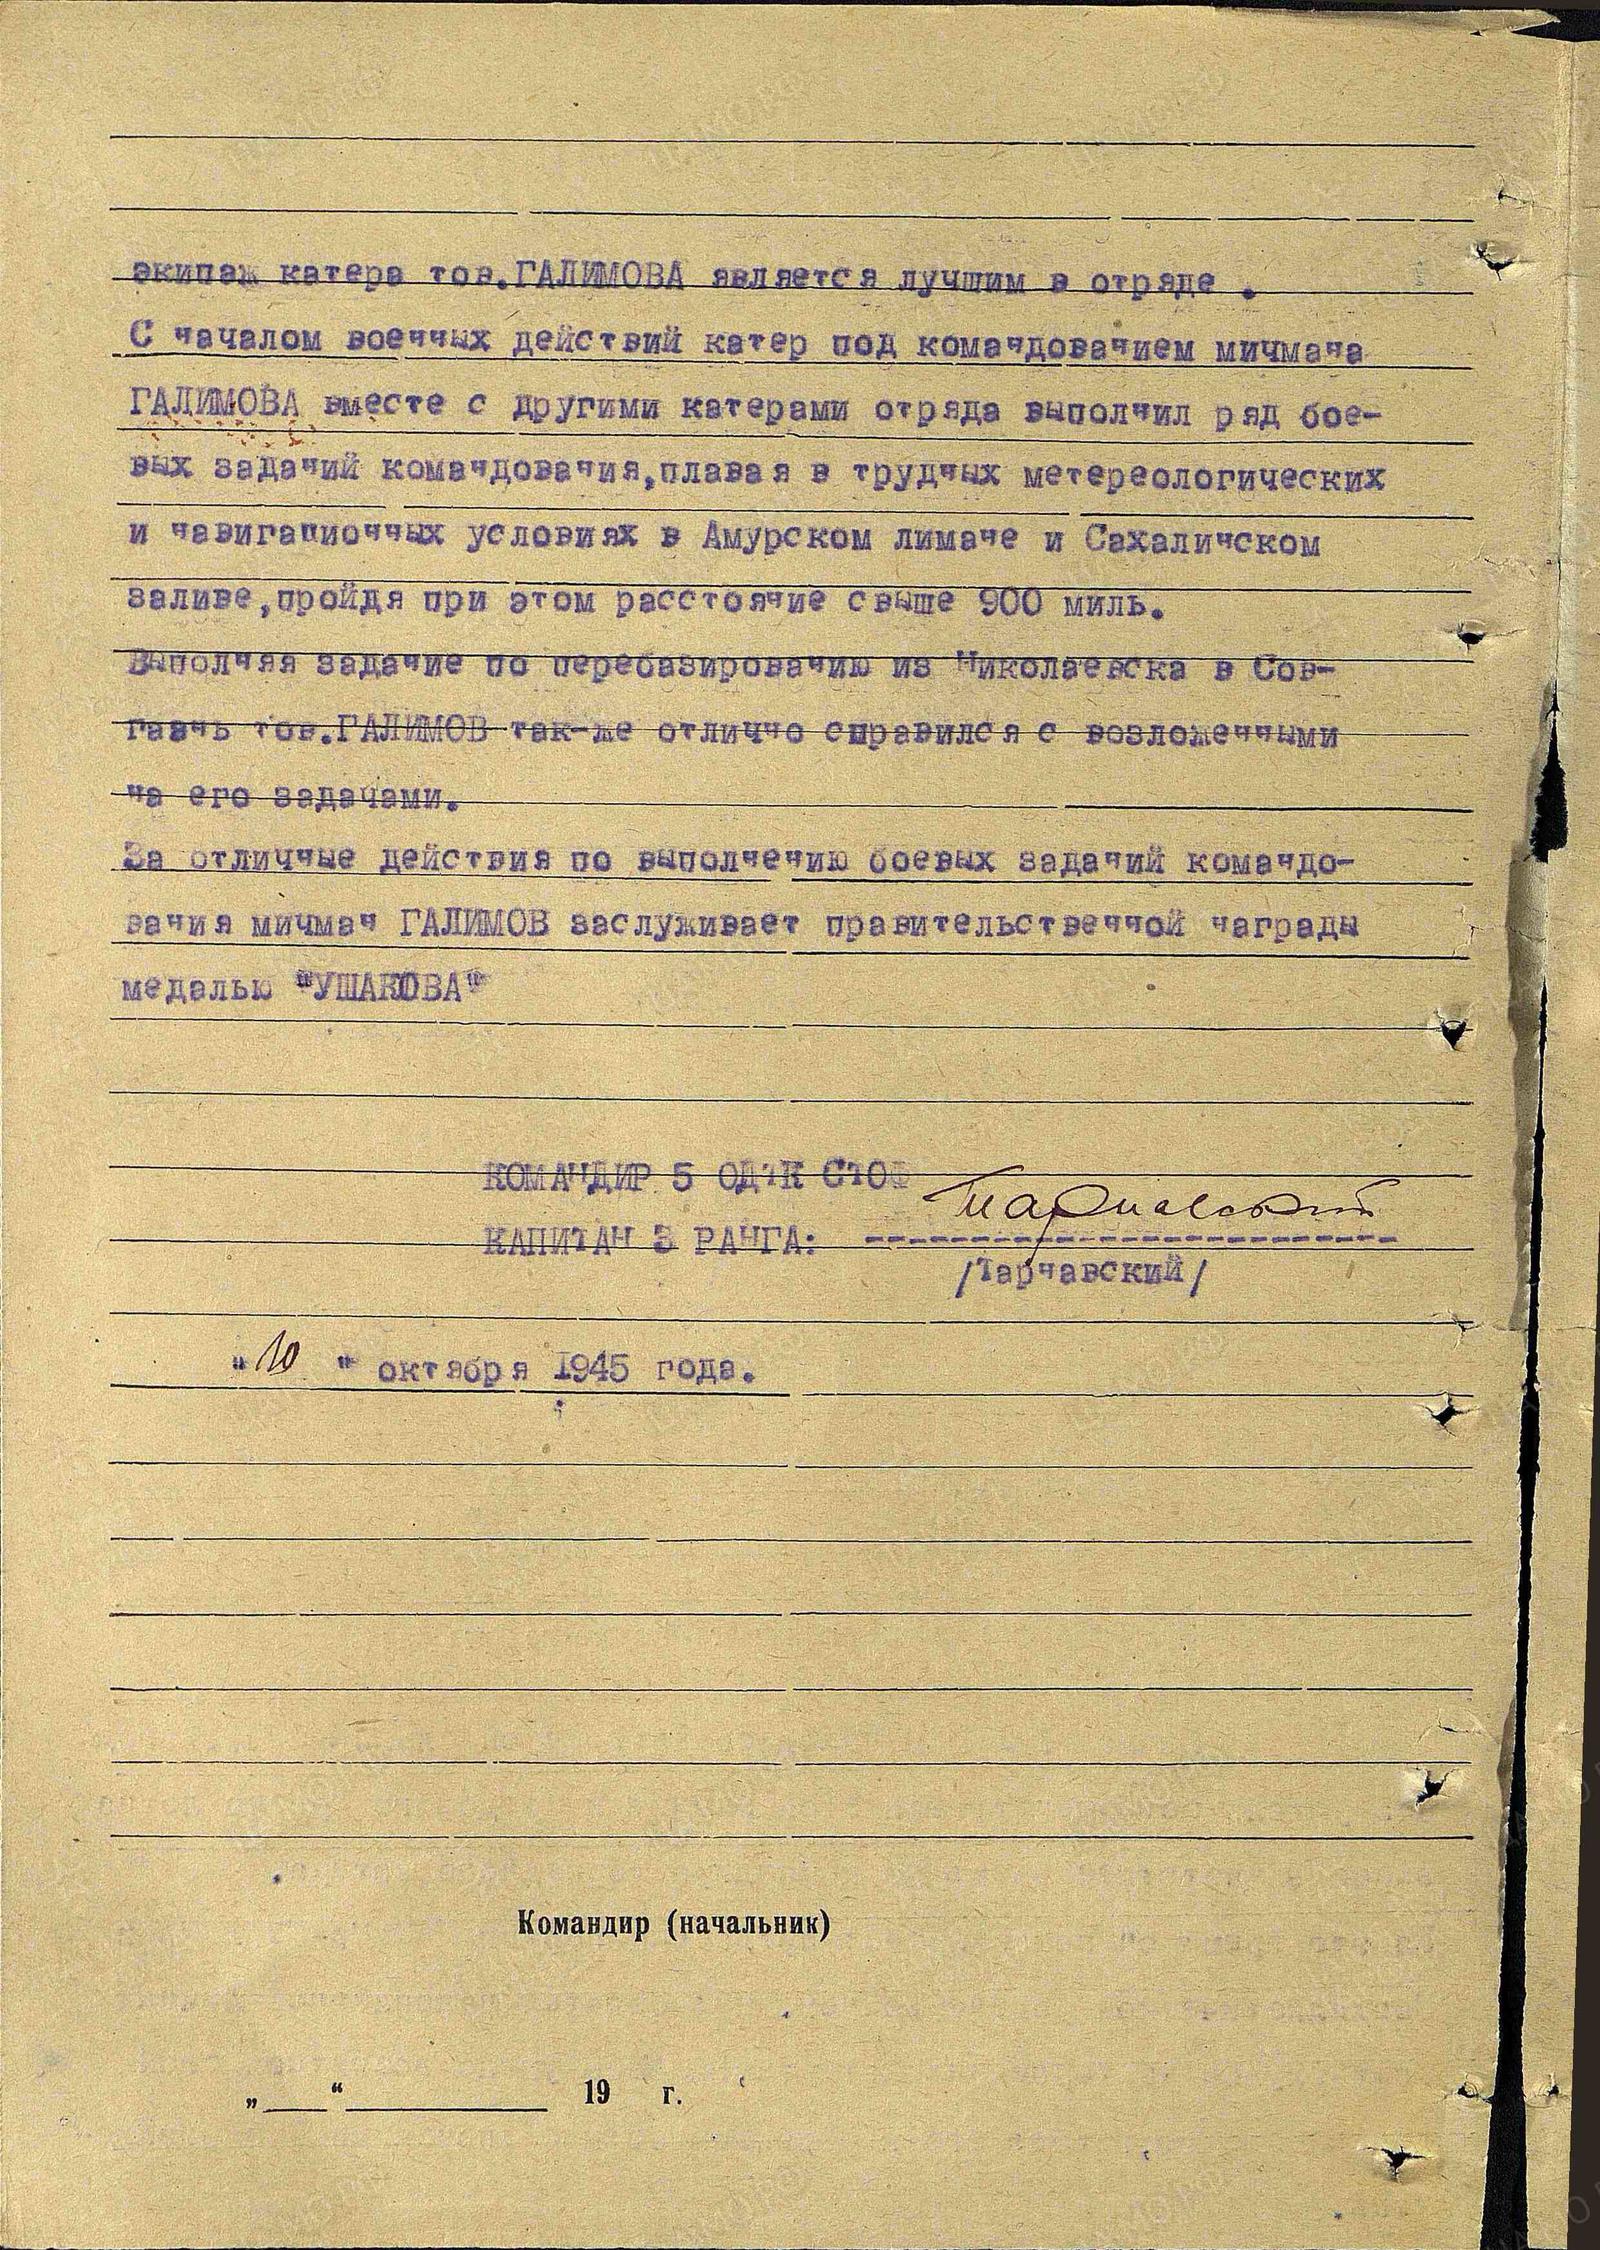 экипаж катера тов.ГАЛИМОВА является лучшим в отряде .
С началом военных действий катер под командованием мичмана
ГАЛИМОВА вместе с другими катерами отряда выполнил ряд бое-
вых заданий командования,плавая в трудных метереологических
и навигационных условиях в Амурском лимане и Сахалинском
заливе,пройдя при этом расстояние свыше 900 миль.
Выполняя задание по перебазированию из Николаевска в Сов-
гавнь тов.ГАЛИМОВ так-же отлично справился с возложенными
на его задачами.
За отличные действия по выполнению боевых заданий командо-
вания мичман ГАЛИМОВ заслуживает правительственной награды
медалью "УШАКОВА"
КОМАНДИР 5 ОДТК СТОФ
КАПИТАН 3 РАНГА:
/Тарнавский/
"10 " октября 1945 года.
Командир (начальник)
„ “ 19 г.